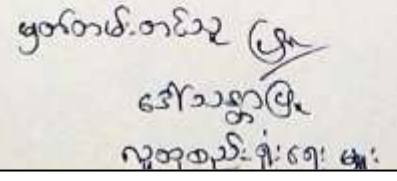 မှတ်တမ်းတင်သူ
ဒေါ်သန္တာဖြူ
လူထုစည်းရုံးရေးမှူး